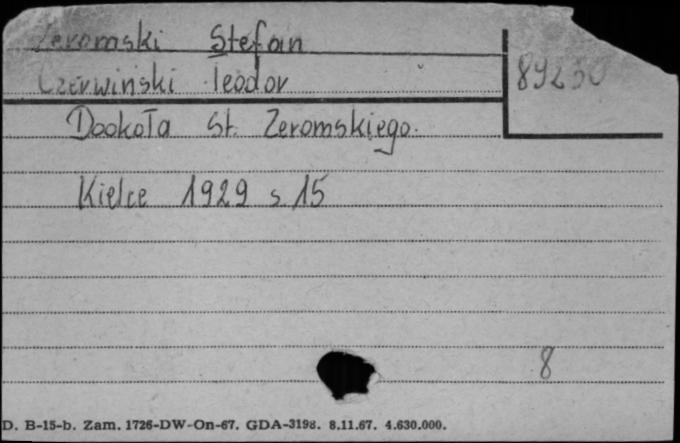 Żeromski Stefan
Czerwiński Teodor
89230
Dookoła St. Żeromskiego.
Kielce 1929 s. 15
8
D. B-15-b. Zam. 1726-DW-On-67. GDA-3198. 8.11.67. 4.630.000.